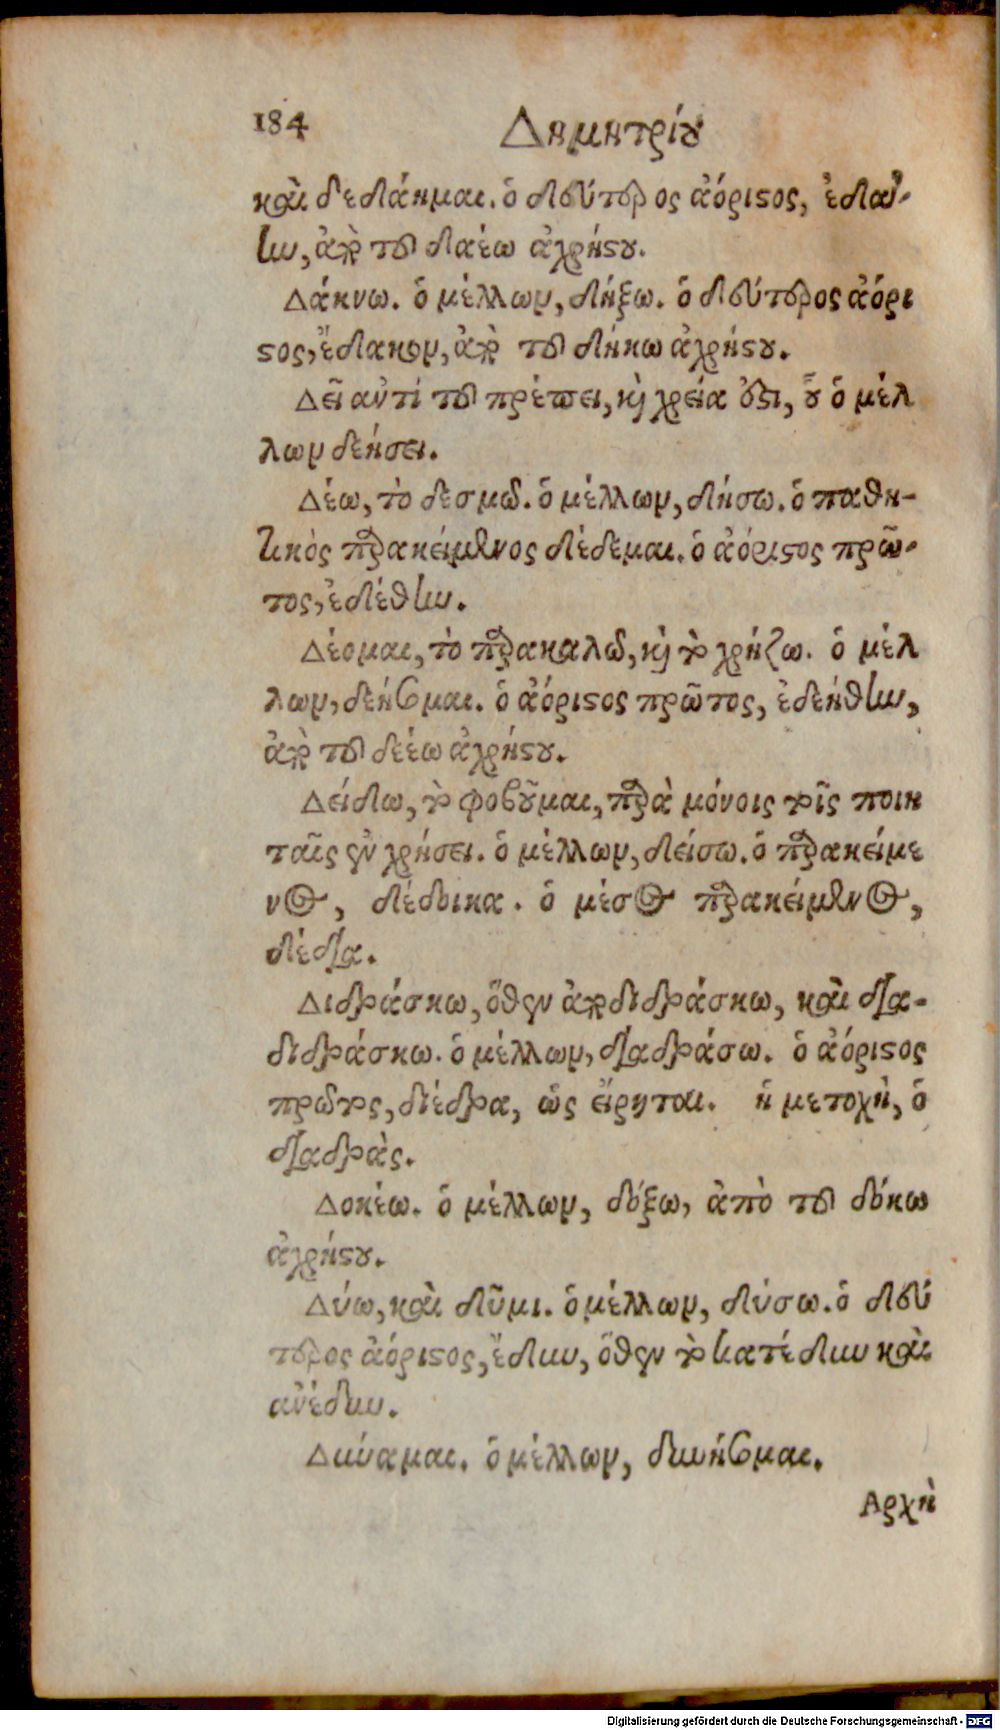 184 Δημητρίου
καὶ δεδάημαι. ὁ δεύτερος ἀόριστος, ἐδάη-
ην, ἀπὸ τοῦ δαέω ἀχρήστου.
Δάκνω. ὁ μέλλων, δήξω. ὁ δεύτερος ἀόρι
στος, ἔδακον, ἀπὸ τοῦ δήκω ἀχρήστου.
Δεῖ ἀντί τοῦ πρέπει, καὶ χρεία ἐστι, οὗ ὁ μέλ
λων δεήσει.
Δέω, τὸ δεσμῶ. ὁ μέλλων, δήσω. ὁ παθη-
τικὸς παρακείμενος δέδεμαι. ὁ ἀόριστος πρῶ-
τος, ἐδέθην.
Δέομαι, τὸ παρακαλῶ, καὶ τὸ χρήζω. ὁ μέλ
λων, δεήσομαι. ὁ ἀόριστος πρῶτος, ἐδεήθην,
ἀπὸ τοῦ δεέω ἀχρήστου.
Δείδω, τὸ φοβοῦμαι, παρὰ μόνοις τοῖς ποιη
ταῖς ἐν χρήσει. ὁ μέλλων, δείσω. ὁ παρακείμε
νος, δέδοικα. ὁ μέσος παρακείμενος,
δέδια.
Διδράσκω, ὅθεν ἀποδιδράσκω, καὶ δια-
διδράσκω. ὁ μέλλων, διαδράσω. ὁ ἀόριστος
πρῶτος, διέδρα, ὡς εἴρηται. ἡ μετοχὴ, ὁ
διαδρὰς.
Δοκέω. ὁ μέλλων, δόξω, ἀπὸ τοῦ δόκω
ἀχρήστου.
Δύω, καὶ δῦμι. ὁ μέλλων, δύσω. ὁ δεύ
τερος ἀόριστος, ἔδυν, ὅθεν τὸ κατέδυν καὶ
ἀνέδυν.
Δύναμαι. ὁ μέλλων, δυνήσομαι.
Αρχὴ
Digitalisierung gefördert durch die Deutsche Forschungsgemeinschaft - DFG